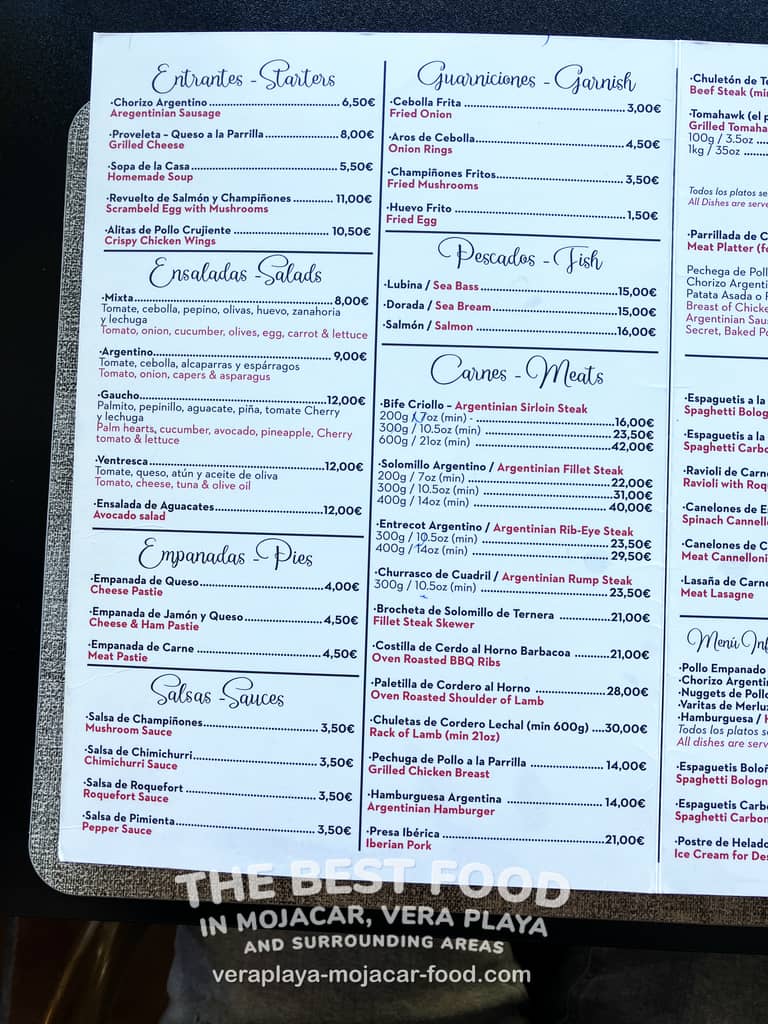 Entrantes - Starters
·Chorizo Argentino 6,50€
Aregentinian Sausage
·Proveleta – Queso a la Parrilla 8,00€
Grilled Cheese
·Sopa de la Casa 5,50€
Homemade Soup
·Revuelto de Salmón y Champiñones 11,00€
Scrambeld Egg with Mushrooms
·Alitas de Pollo Crujiente 10,50€
Crispy Chicken Wings
Ensaladas - Salads
·Mixta 8,00€
Tomate, cebolla, pepino, olivas, huevo, zanahoria
y lechuga
Tomato, onion, cucumber, olives, egg, carrot & lettuce
·Argentino 9,00€
Tomate, cebolla, alcaparras y espárragos
Tomato, onion, capers & asparagus
·Gaucho 12,00€
Palmito, pepinillo, aguacate, piña, tomate Cherry
y lechuga
Palm hearts, cucumber, avocado, pineapple, Cherry
tomato & lettuce
·Ventresca 12,00€
Tomate, queso, atún y aceite de oliva
Tomato, cheese, tuna & olive oil
·Ensalada de Aguacates 12,00€
Avocado salad
Empanadas - Pies
·Empanada de Queso 4,00€
Cheese Pastie
·Empanada de Jamón y Queso 4,50€
Cheese & Ham Pastie
·Empanada de Carne 4,50€
Meat Pastie
Salsas - Sauces
·Salsa de Champiñones 3,50€
Mushroom Sauce
·Salsa de Chimichurri 3,50€
Chimichurri Sauce
·Salsa de Roquefort 3,50€
Roquefort Sauce
·Salsa de Pimienta 3,50€
Pepper Sauce
Guarniciones - Garnish
·Cebolla Frita 3,00€
Fried Onion
·Aros de Cebolla 4,50€
Onion Rings
·Champiñones Fritos 3,50€
Fried Mushrooms
·Huevo Frito 1,50€
Fried Egg
Pescados - Fish
·Lubina / Sea Bass 15,00€
·Dorada / Sea Bream 15,00€
·Salmón / Salmon 16,00€
Carnes - Meats
·Bife Criollo – Argentinian Sirloin Steak
200g / 7oz (min) - 16,00€
300g / 10.5oz (min) 23,50€
600g / 21oz (min) 42,00€
·Solomillo Argentino / Argentinian Fillet Steak
200g / 7oz (min) 22,00€
300g / 10.5oz (min) 31,00€
400g / 14oz (min) 40,00€
·Entrecot Argentino / Argentinian Rib-Eye Steak
300g / 10.5oz (min) 23,50€
400g / 14oz (min) 29,50€
·Churrasco de Cuadril / Argentinian Rump Steak
300g / 10.5oz (min) 23,50€
·Brocheta de Solomillo de Ternera 21,00€
Fillet Steak Skewer
·Costilla de Cerdo al Horno Barbacoa 21,00€
Oven Roasted BBQ Ribs
·Paletilla de Cordero al Horno 28,00€
Oven Roasted Shoulder of Lamb
·Chuletas de Cordero Lechal (min 600g) 30,00€
Rack of Lamb (min 21oz)
·Pechuga de Pollo a la Parrilla 14,00€
Grilled Chicken Breast
·Hamburguesa Argentina 14,00€
Argentinian Hamburger
·Presa Ibérica 21,00€
Iberian Pork
·Chuletón de
Beef Steak
·Tomahawk (el
Grilled
100g / 3.5oz
1kg / 35oz
Todos los platos
All Dishes are
·Parrillada de
Meat Platter
Pechega de
Chorizo
Patata Asada o
Breast of
Argentinian
Secret, Baked
·Espaguetis a la
Spaghetti
·Espaguetis a la
Spaghetti
·Ravioli de
Ravioli with
·Canelones de
Spinach
·Canelones de
Meat Cannelloni
·Lasaña de
Meat Lasagne
Menú
·Pollo Empanado
·Chorizo
·Nuggets de
·Varitas de
·Hamburguesa /
Todos los platos
All dishes are
·Espaguetis
Spaghetti
·Espaguetis
Spaghetti
·Postre de
Ice Cream for
THE BEST FOOD
IN MOJACAR, VERA PLAYA
AND SURROUNDING AREAS
veraplaya-mojacar-food.com